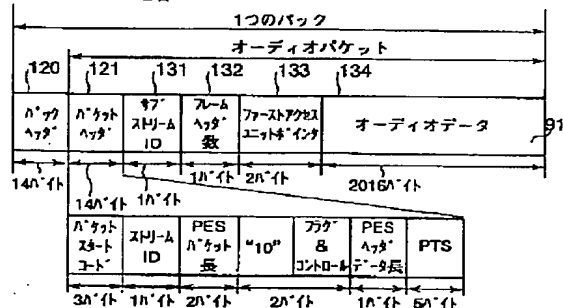 1つのパック
オーディオパケット
120 121 131 132 133 134
パック ヘッダ
パケット ヘッダ
サブ ストリーム ID
フレーム ヘッダ 数
ファーストアクセス ユニットポインタ
オーディオデータ
91
14バイト 14バイト 1バイト 1バイト 2バイト 2016バイト
パケット スタート コード
ストリーム ID
PES パケット 長
"10"
フラグ & コントロール
PES ヘッダ データ長
PTS
3バイト 1バイト 2バイト 2バイト 1バイト 5バイト